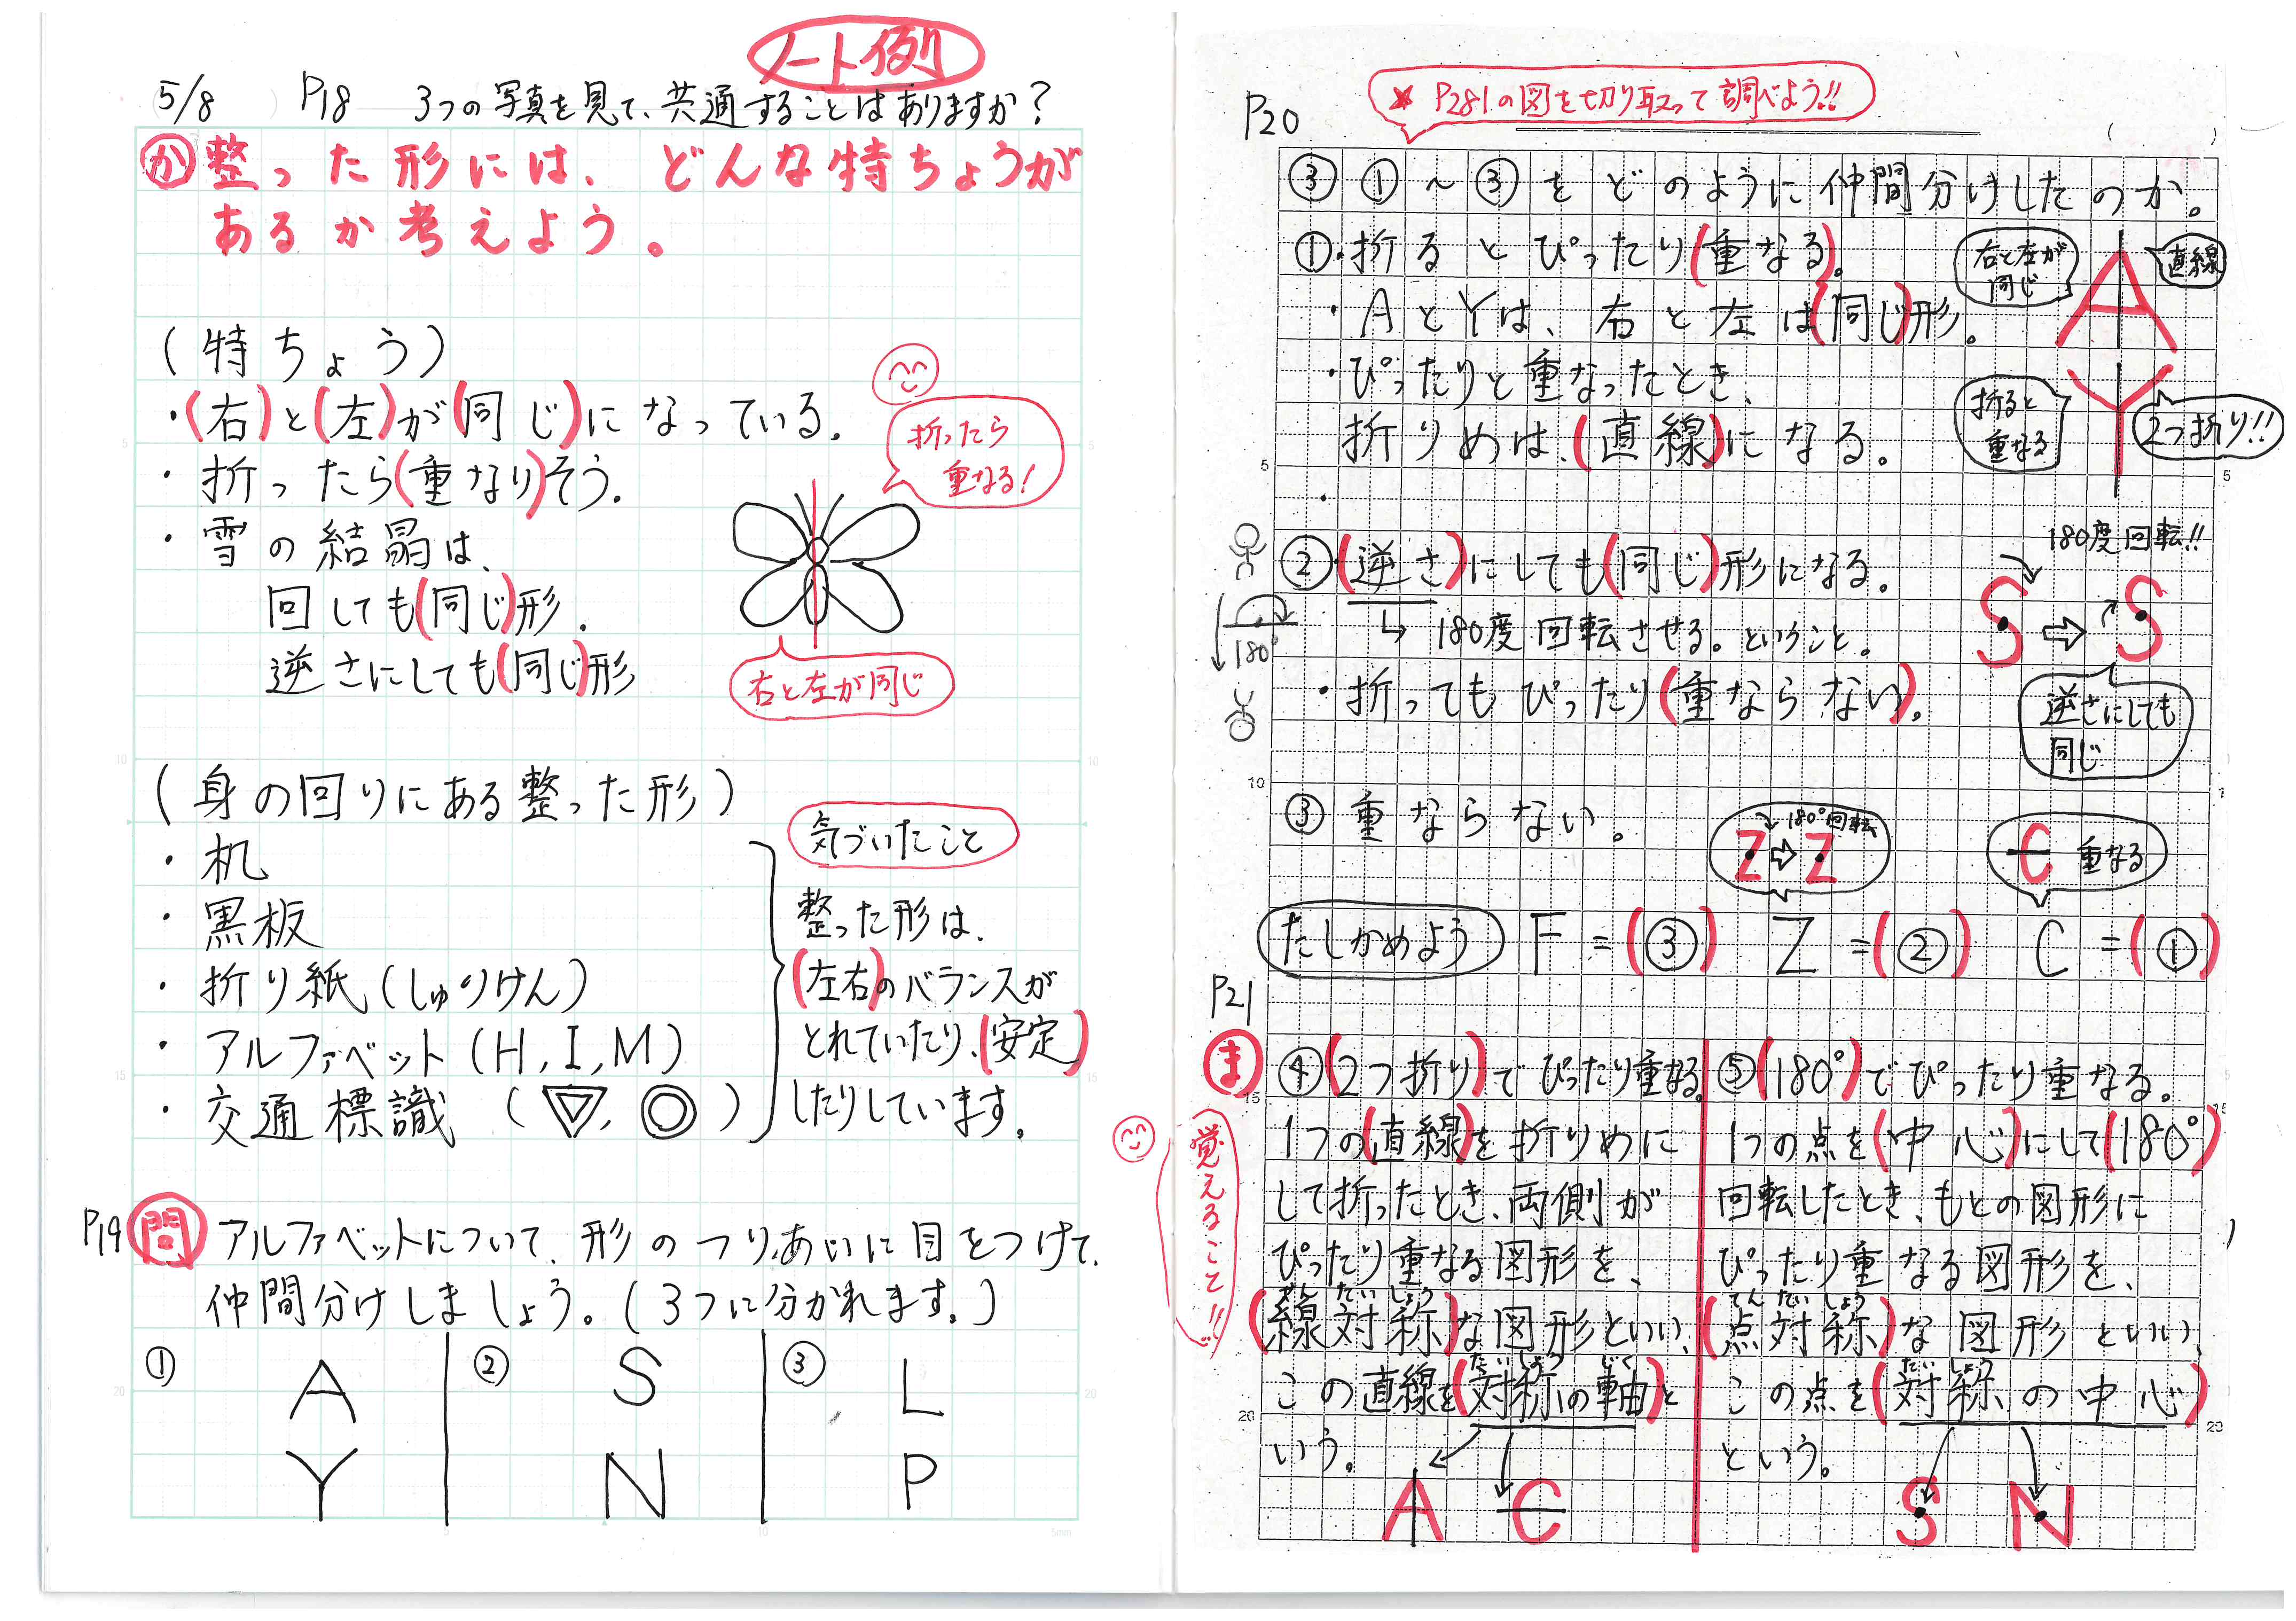 ノート例
5/8 P18 3つの写真を見て、共通することはありますか？
か 整った形には、どんな特ちょうが
あるか考えよう。
（特ちょう）
・(右)と(左)が(同じ)になっている。
・折ったら(重なり)そう。
・雪の結晶は、
回しても(同じ)形.
逆さにしても(同じ)形
折ったら
重なる!
右と左が同じ
（身の回りにある整った形）
・机
・黒板
・折り紙（しゅりけん）
・アルファベット（H, I, M）
・交通標識（▽, ◎）
気づいたこと
整った形は、
(左右)のバランスが
とれていたり、(安定)
したりしています。
P19 問 アルファベットについて、形のつりあいに目をつけて、
仲間分けしましょう。（3つに分かれます。）
① A Y
② S N
③ L P
P20
★ P281の図を切り取って調べよう!!
③ ①～③をどのように仲間分けしたのか。
①・折るとぴったり(重なる)。
・AとYは、右と左は(同じ)形。
・ぴったりと重なったとき、
折りめは、(直線)になる。
・
右と左が
同じ
A
直線
折ると
重なる
Y
2つ折り!!
②・(逆さ)にしても(同じ)形になる。
↳ 180度回転させる。ということ。
・折ってもぴったり(重ならない)。
180°
180度回転!!
S ⇨ S
逆さにしても
同じ
③ 重ならない。
180°回転
Z ⇨ Z
C 重なる
たしかめよう F = (③) Z = (②) C = (①)
P21
ま
覚えること!!
④(2つ折り)でぴったり重なる。
1つの(直線)を折りめに
して折ったとき、両側が
ぴったり重なる図形を、
せんたいしょう
(線対称)な図形といい、
たいしょう じく
この直線を(対称の軸)と
いう。
A C
⑤(180°)でぴったり重なる。
1つの点を(中心)にして(180°)
回転したとき、もとの図形に
ぴったり重なる図形を、
てんたいしょう
(点対称)な図形といい、
たいしょう
この点を(対称の中心)
という。
S N